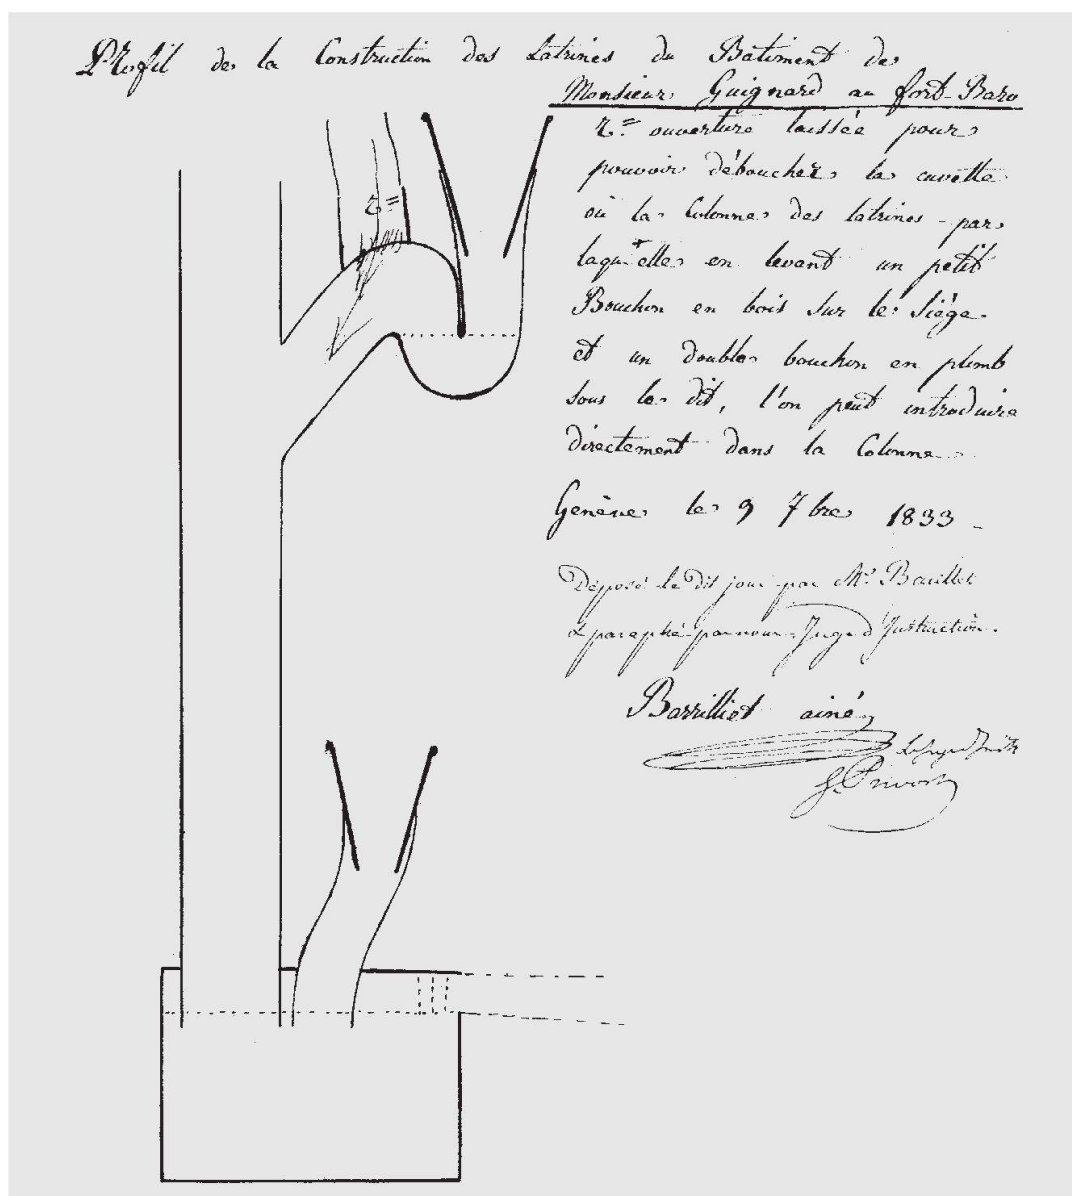 Profil de la Construction des Latrines du Bâtiment de
Monsieur Guignard au fort-Baro
r.= ouverture laissée pour
pouvoir déboucher la cuvette
où la Colonne des latrines - par
laquelle en levant un petit
Bouchon en bois sur le siège
et un double bouchon en plomb
sous le dit, l'on peut introduire
directement dans la Colonne.
r=
Genève le 9 7bre 1833
Déposé le dit jour par Mr. Barillet
& paraphé par nous Juge d'Instruction.
Barrilliet ainé